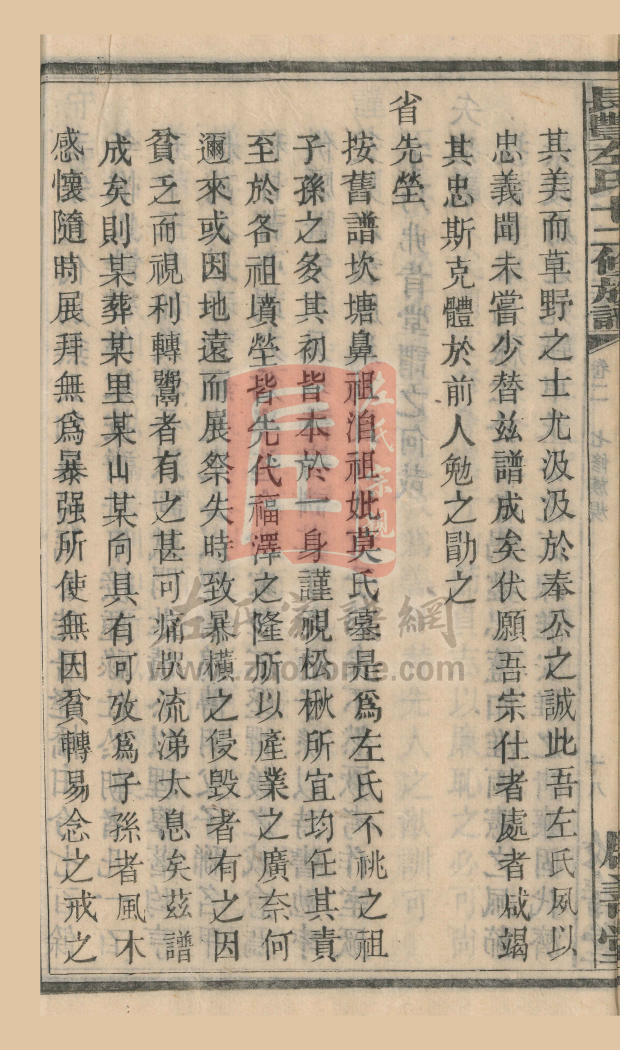 其美而草野之士尤汲汲於奉公之誠此吾左氏夙以
忠義聞未嘗少替兹譜成矣伏願吾宗仕者處者咸竭
其忠斯克體於前人勉之勖之
省先塋
按舊譜坎塘鼻祖洎祖妣莫氏墓是爲左氏不祧之祖
子孫之多其初皆本於一身謹視松楸所宜均任其責
至於各祖墳塋皆先代福澤之隆所以產業之廣奈何
邇來或因地遠而展祭失時致暴橫之侵毀者有之因
貧乏而視利轉鬻者有之甚可痛哭流涕太息矣茲譜
成矣則某葬某里某山某向具有可攷爲子孫者風木
感懷隨時展拜無爲暴强所使無因貧轉易念之戒之
左氏宗親
www.zuohome.com
左氏 譜網
長豐左氏十二修族譜
卷二 七修族規
十八